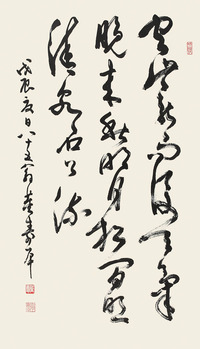 空山新雨後天氣
晚来秋明月松间照
清泉石上流
戊辰夏日八十五翁董寿平